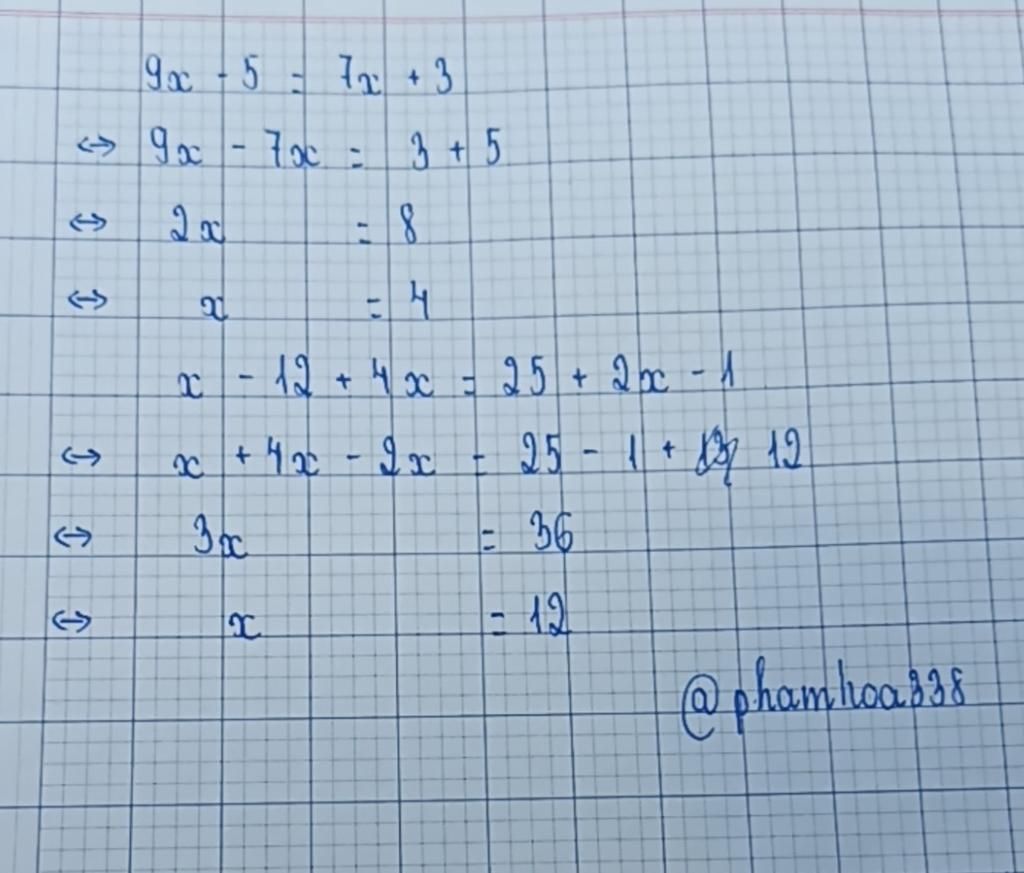 9x - 5 = 7x + 3
↔ 9x - 7x = 3 + 5
↔ 2x = 8
↔ x = 4
x - 12 + 4x = 25 + 2x - 1
↔ x + 4x - 2x = 25 - 1 + 12
↔ 3x = 36
↔ x = 12
@phamhoa338